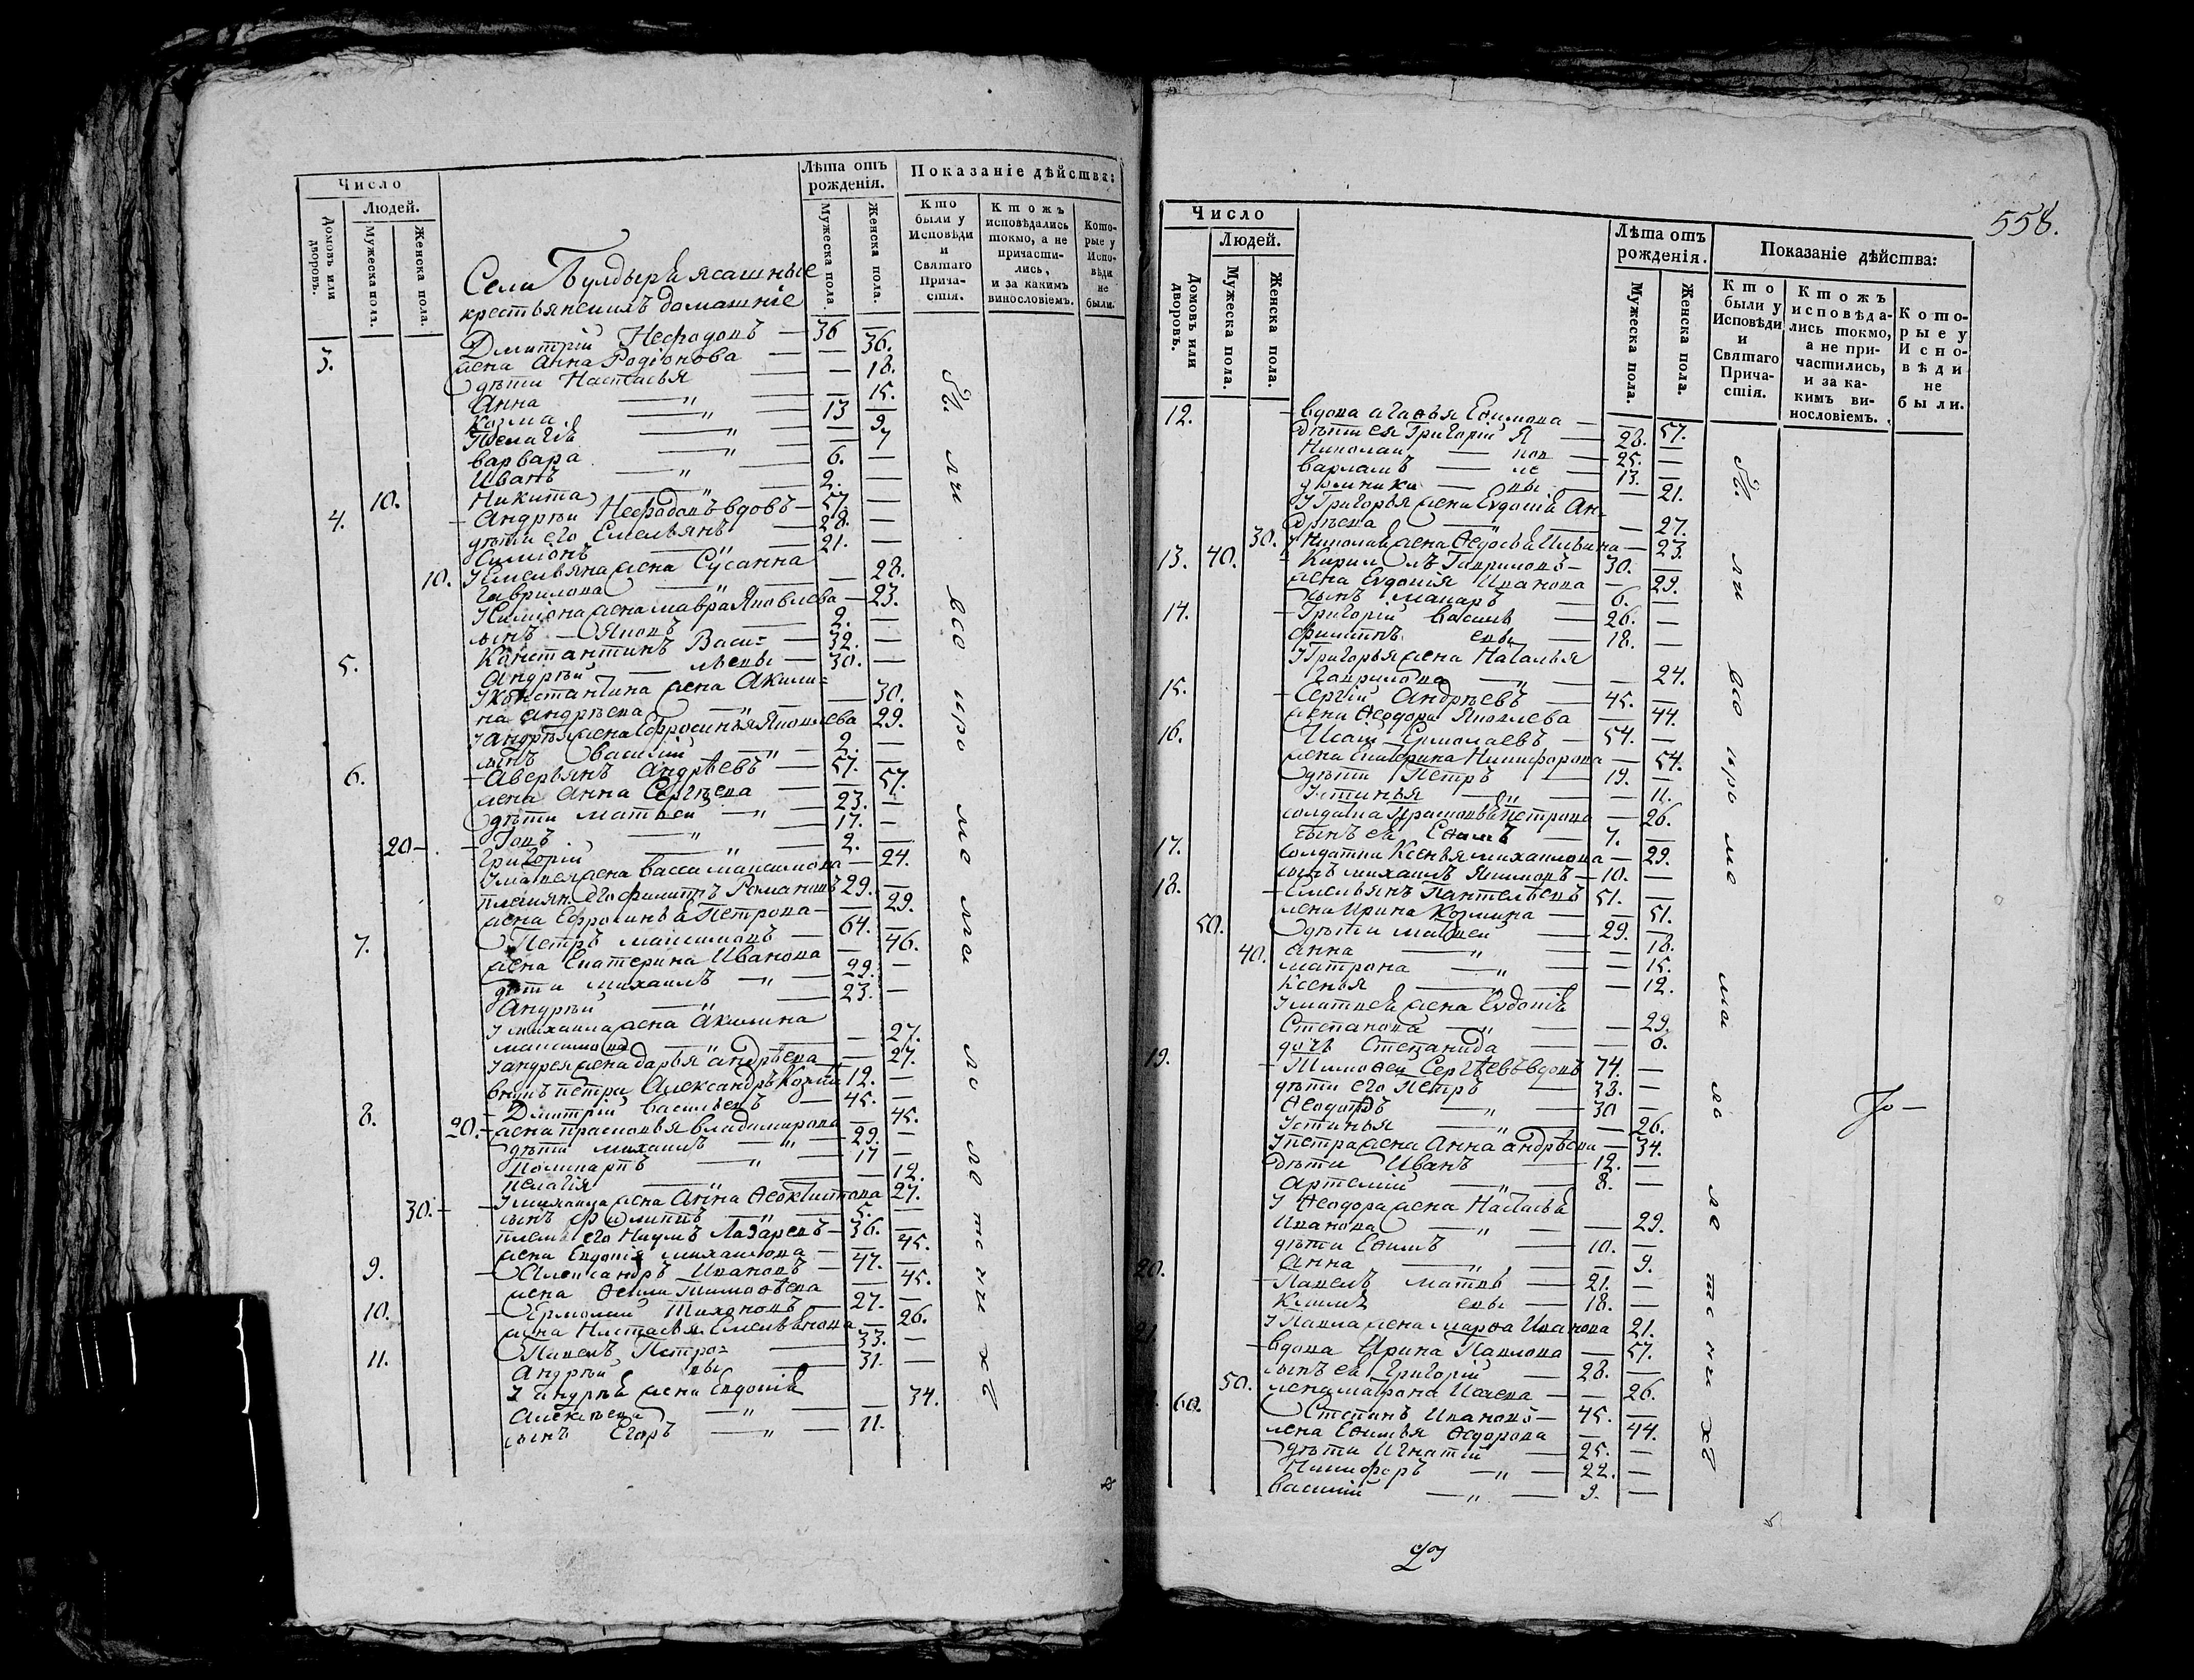 Число
Людей.
Домовъ или дворовъ.
Мужеска пола.
Женска пола.
Лѣта отъ рожденія.
Мужеска пола.
Женска пола.
Показаніе дѣйства:
Кто были у Исповѣди и Святаго Прича- стія.
Ктожъ исповѣдались токмо, а не причасти- лись, и за какимъ винословіемъ.
Кото- рые у Испо- вѣди не были.
Села Булдыря ясашные
крестьянския домашніе
3. Дмитрій Нефодовъ — 36
жена Анна Родіонова — — 36.
дѣти Настасья — — 18.
Анна — „ — — 15.
Козма — „ — 13 —
Пелагѣя — „ — — 9
варвара — „ — — 7
Иванъ — „ — 6. —
10. Никита — „ — 2. —
4. Андрѣй Нефодовъ вдовъ — 57 —
дѣти его Емельянъ — 28. —
Симіонъ — „ — 21. —
10. У Емельяна жена Сусанна
Гаврилова — „ — — 28.
У Симіона жена мавра Яковлева — 23.
сынъ — Яковъ — 2. —
5. Константинъ Васи= — 32. —
Андрѣй — льевы — 30. —
У Константина жена Акили=
на андрѣева — „ — — 30.
У андрѣя жена Ефросинья Яковлева 29.
сынъ василій — „ — 2. —
6. Аверьянъ Андрѣевъ — 57. —
жена Анна Сергѣева — — 57.
дѣти матвей — „ — 23. —
20 — — „ — 17. —
Григорій — „ — 2. —
У матвея жена васса максимова — 24.
племян. его филиппъ Романовъ 29. —
жена Ефросинья Петрова — — 29.
7. Петръ максимовъ — 64. —
жена Екатерина Иванова — 46.
дѣти михаилъ — „ — 29. —
Андрѣй — „ — 23. —
У михаила жена Акилина
максимова — „ — — 27.
У андрея жена дарья андрѣева — 27.
внукъ петра Александръ Козми 12. —
8. Дмитрій васильевъ — 45. —
20. — жена прасковья владимирова — 45.
дѣти михаилъ — „ — 29. —
Поликарпъ — „ — 17 —
пелагія — „ — — 12.
30. — У михаила жена Анна Ѳеоктистова 27.
сынъ филиппъ — „ — 5. —
племя его Наумъ Лазаревъ — 36. —
жена Евдокія михаилова — — 45.
9. Александръ Ивановъ — 47. —
жена Ѳекла Тимоѳѣева — 45.
10. Ермолай Тихоновъ — 27. —
жена Настасья Емельянова — 26.
11. Павелъ Петро= — 33. —
Андрѣй вы — 31. —
У андрѣя жена Евдокія
Алексѣева — „ — — 34.
сынъ Егоръ — „ — 11.
558.
Число
Людей.
Домовъ или дворовъ.
Мужеска пола.
Женска пола.
Лѣта отъ рожденія.
Мужеска пола.
Женска пола.
Показаніе дѣйства:
Кто были у Исповѣди и Святаго Прича- стія.
Ктожъ исповѣда- лись токмо, а не при- частились, и за ка- кимъ ви- нословіемъ.
Кото- рые у Испо- вѣди не были.
12. вдова агаѳья Ефимова — — 57.
дѣти ея Григорій Я — 28. —
Николай — ков — 25. —
варламъ — ле — 13. —
— вы — — 21.
У Григорья жена Евдокія Ан=
дрѣева — „ — — 27.
30. У Николая жена Ѳедосья Ильина — 23.
13. 40. Кирилъ Гавриловъ — 30. —
жена Евдокія Иванова — 29.
сынъ макаръ — 6. —
14. Григорій василь — 26. —
филиппъ евы — 18. —
У Григорья жена Наталья
Гаврилова — „ — — 24.
15. Сергій Андрѣевъ — 45. —
жена Ѳеодора Яковлева — 44.
16. Исай Ермолаевъ — 54. —
жена Екатерина Никифорова — 54.
дѣти Петръ — 19. —
Устинья — „ — — 11.
солдатка Прасковья Петрова — 26.
сынъ ея Ефимъ — 7. —
17. солдатка Ксенья михаилова — 29.
сынъ михаилъ — 10. —
18. Емельянъ Пантелѣевъ 51. —
жена Ирина Козмина — — 51.
50. дѣти матвей — 29. —
40. анна — „ — — 18.
матрона — „ — — 15.
Ксенья — „ — — 12.
У матвея жена Евдокія
Степанова — „ — — 29.
дочь Степанида — — 6.
19. Тимоѳей Сергѣевъ вдовъ 74. —
дѣти его Петръ — 33. —
Ѳеодоръ — „ — 30 —
Устинья — „ — — 26.
У петра жена Анна андрѣева — 34.
дѣти Иванъ — 12. —
артемій — „ — 8. —
У Ѳеодора жена Настасья
Иванова — „ — — 29.
дѣти Ефимъ — 10. —
анна — „ — — 9.
20. Павелъ матвѣ — 21. —
Климъ евы — 18. —
У Павла жена марѳа Иванова 21.
21. вдова Ирина Павлова — 57.
сынъ ея Григорій — 28. —
50. жена матрона Исаева — — 26.
60. Степанъ Ивановъ — 45. —
жена Ефимья Ѳедорова — 44.
дѣти Игнатій — 25. —
Никифоръ — „ — 22. —
василій — „ — 9. —